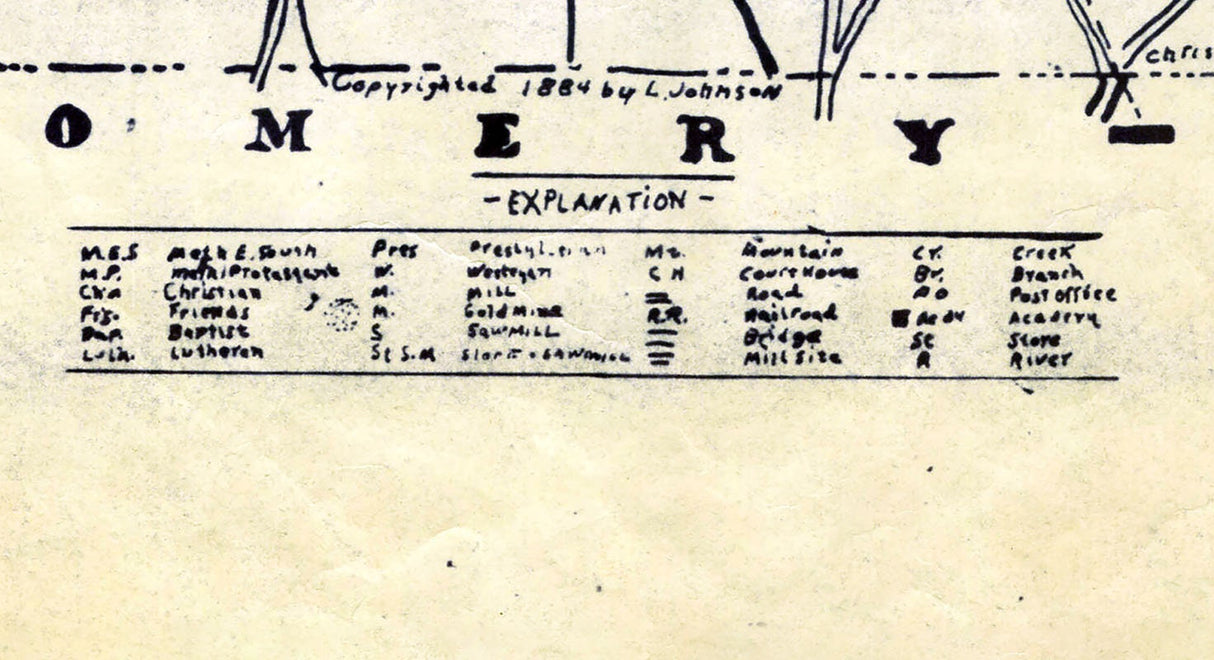 Chris
Copyrighted 1884 by L. Johnson
O M E R Y -
- EXPLANATION -
M.E.S Meth E. South Pres Presbyterian Mt. Mountain Cr. Creek
M.P. Meth Protestant W. Wesleyan C H Court House Br. Branch
Chn Christian M. Mill Road P O Post office
Frs. Friends M. Gold Mine R.R. Railroad Acdy Academy
Bap. Baptist S Sawmill Bridge St Store
Luth. Lutheren St S.M Store + Sawmill Mill Site R River